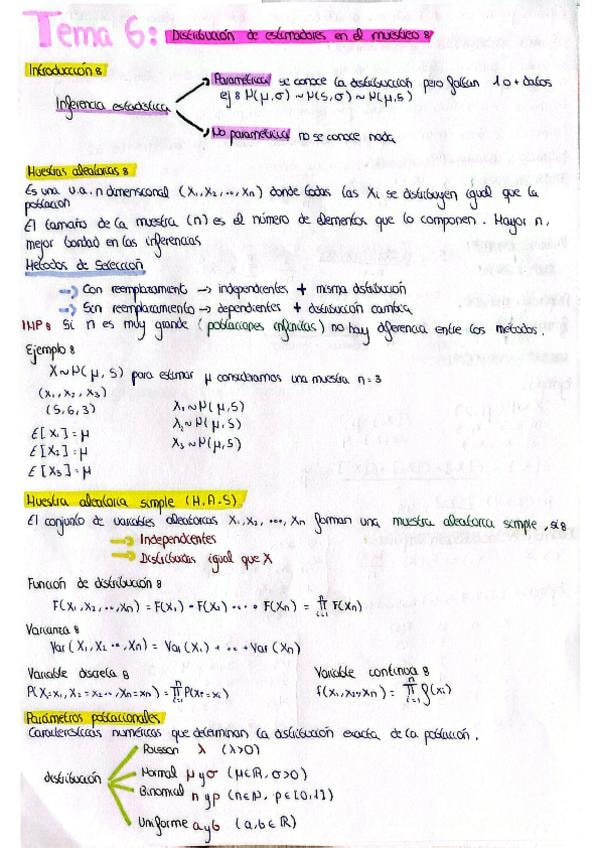 Tema 6: Distribución de estimadores en el muestreo :
Introducción :
Inferencia estadística
Paramétrica: se conoce la distribución pero faltan 1 o + datos
ej : N(μ, σ) ~ N(5, σ) ~ N(μ, 5)
No paramétrica: no se conoce nada
Muestras aleatorias :
Es una v.a. n dimensional (X₁, X₂, ..., Xn) donde todas las Xi se distribuyen igual que la
población
El tamaño de la muestra (n) es el número de elementos que lo componen. Mayor n,
mejor bondad en las inferencias
Métodos de Selección
→ Con reemplazamiento → independientes + misma distribución
→ Sin reemplazamiento → dependientes + distribución cambia
IMP : Si n es muy grande (poblaciones infinitas) no hay diferencia entre los métodos.
Ejemplo :
X ~ N(μ, 5) para estimar μ consideramos una muestra n = 3
(x₁, x₂, x₃)
(5, 6, 3)
X₁ ~ N(μ, 5)
X₂ ~ N(μ, 5)
X₃ ~ N(μ, 5)
E[X₁] = μ
E[X₂] = μ
E[X₃] = μ
Muestra aleatoria simple (M.A.S)
El conjunto de variables aleatorias X₁, X₂, ..., Xn forman una muestra aleatoria simple, si :
→ Independientes
→ Distribuidas igual que X
Función de distribución :
F(X₁, X₂, ..., Xn) = F(X₁) · F(X₂) ... · F(Xn) = ∏ᵢ₌₁ⁿ F(Xn)
Varianza :
Var(X₁, X₂ ..., Xn) = Var(X₁) + ... + Var(Xn)
Variable discreta :
P(X₁=x₁, X₂=x₂..., Xn=xn) = ∏ᵢ₌₁ⁿ P(Xi=xi)
Variable continua :
f(x₁, x₂, xn) = ∏ᵢ₌₁ⁿ f(xi)
Parámetros poblacionales
Características numéricas que determinan la distribución exacta de la población.
distribución
Poisson λ (λ>0)
Normal μ y σ (μ∈ℝ, σ>0)
Binomial n y p (n∈ℕ, p∈[0,1])
Uniforme a y b (a, b ∈ ℝ)